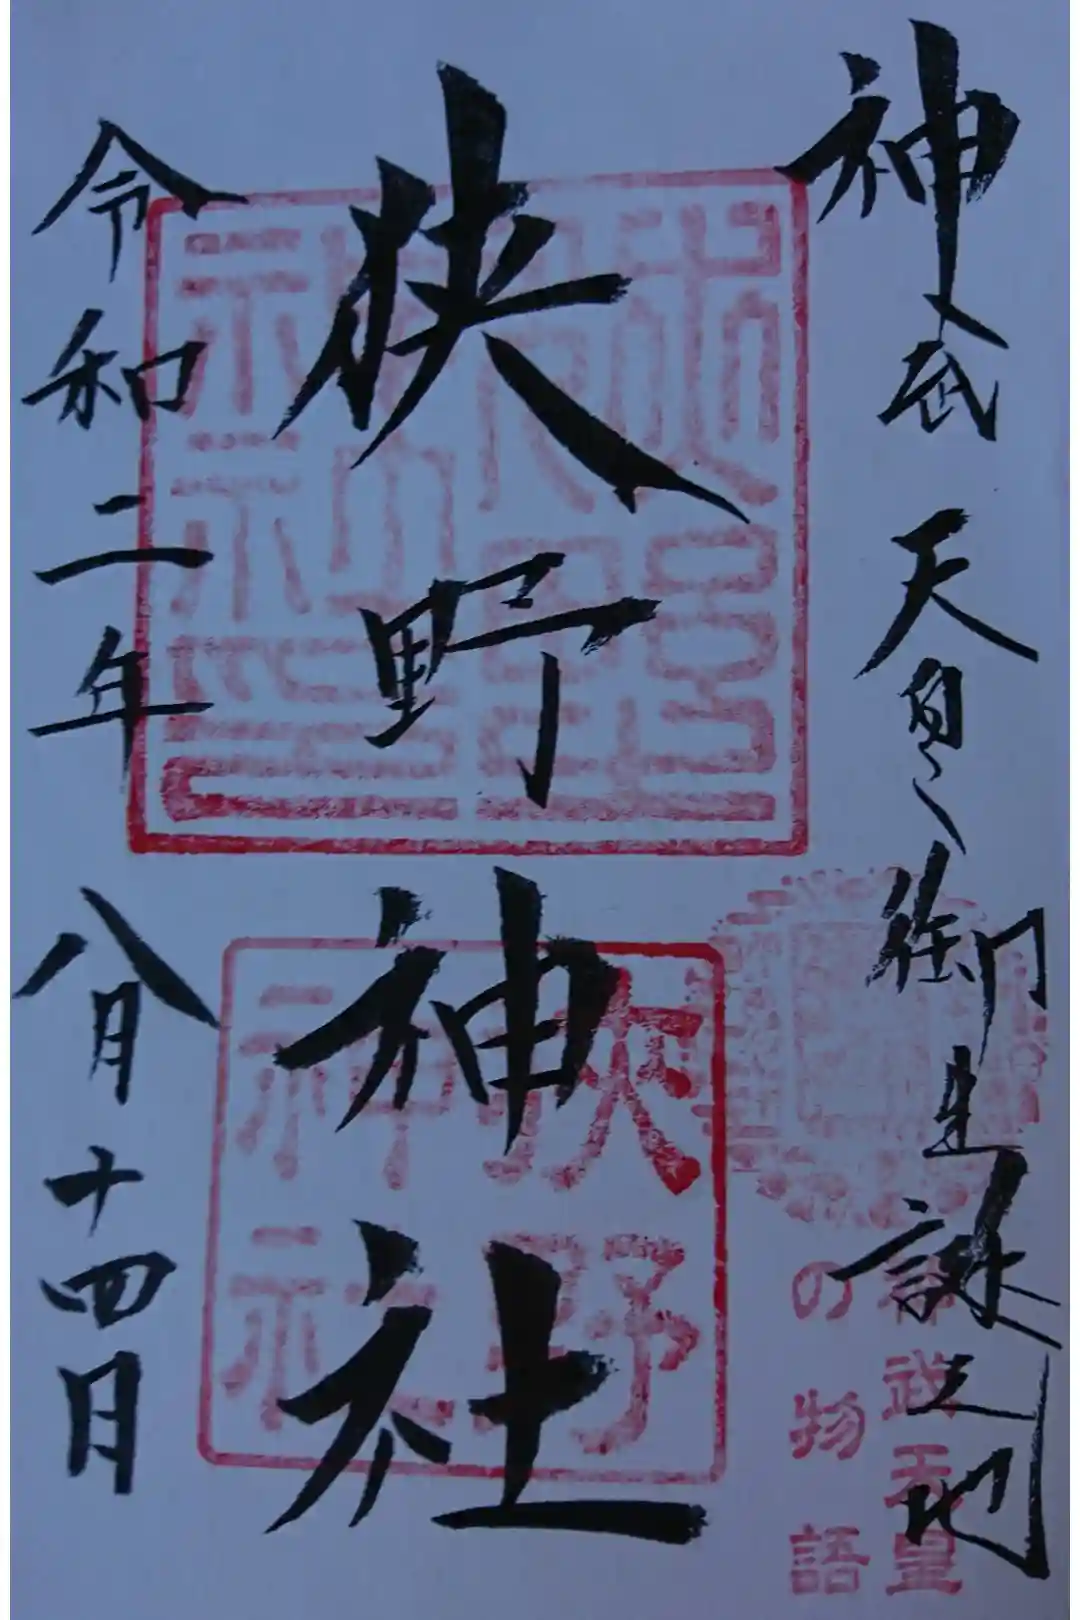 神武天皇御生誕之地
狭野神社
令和二年 八月十四日
狭野
神社
神武天皇
の物語